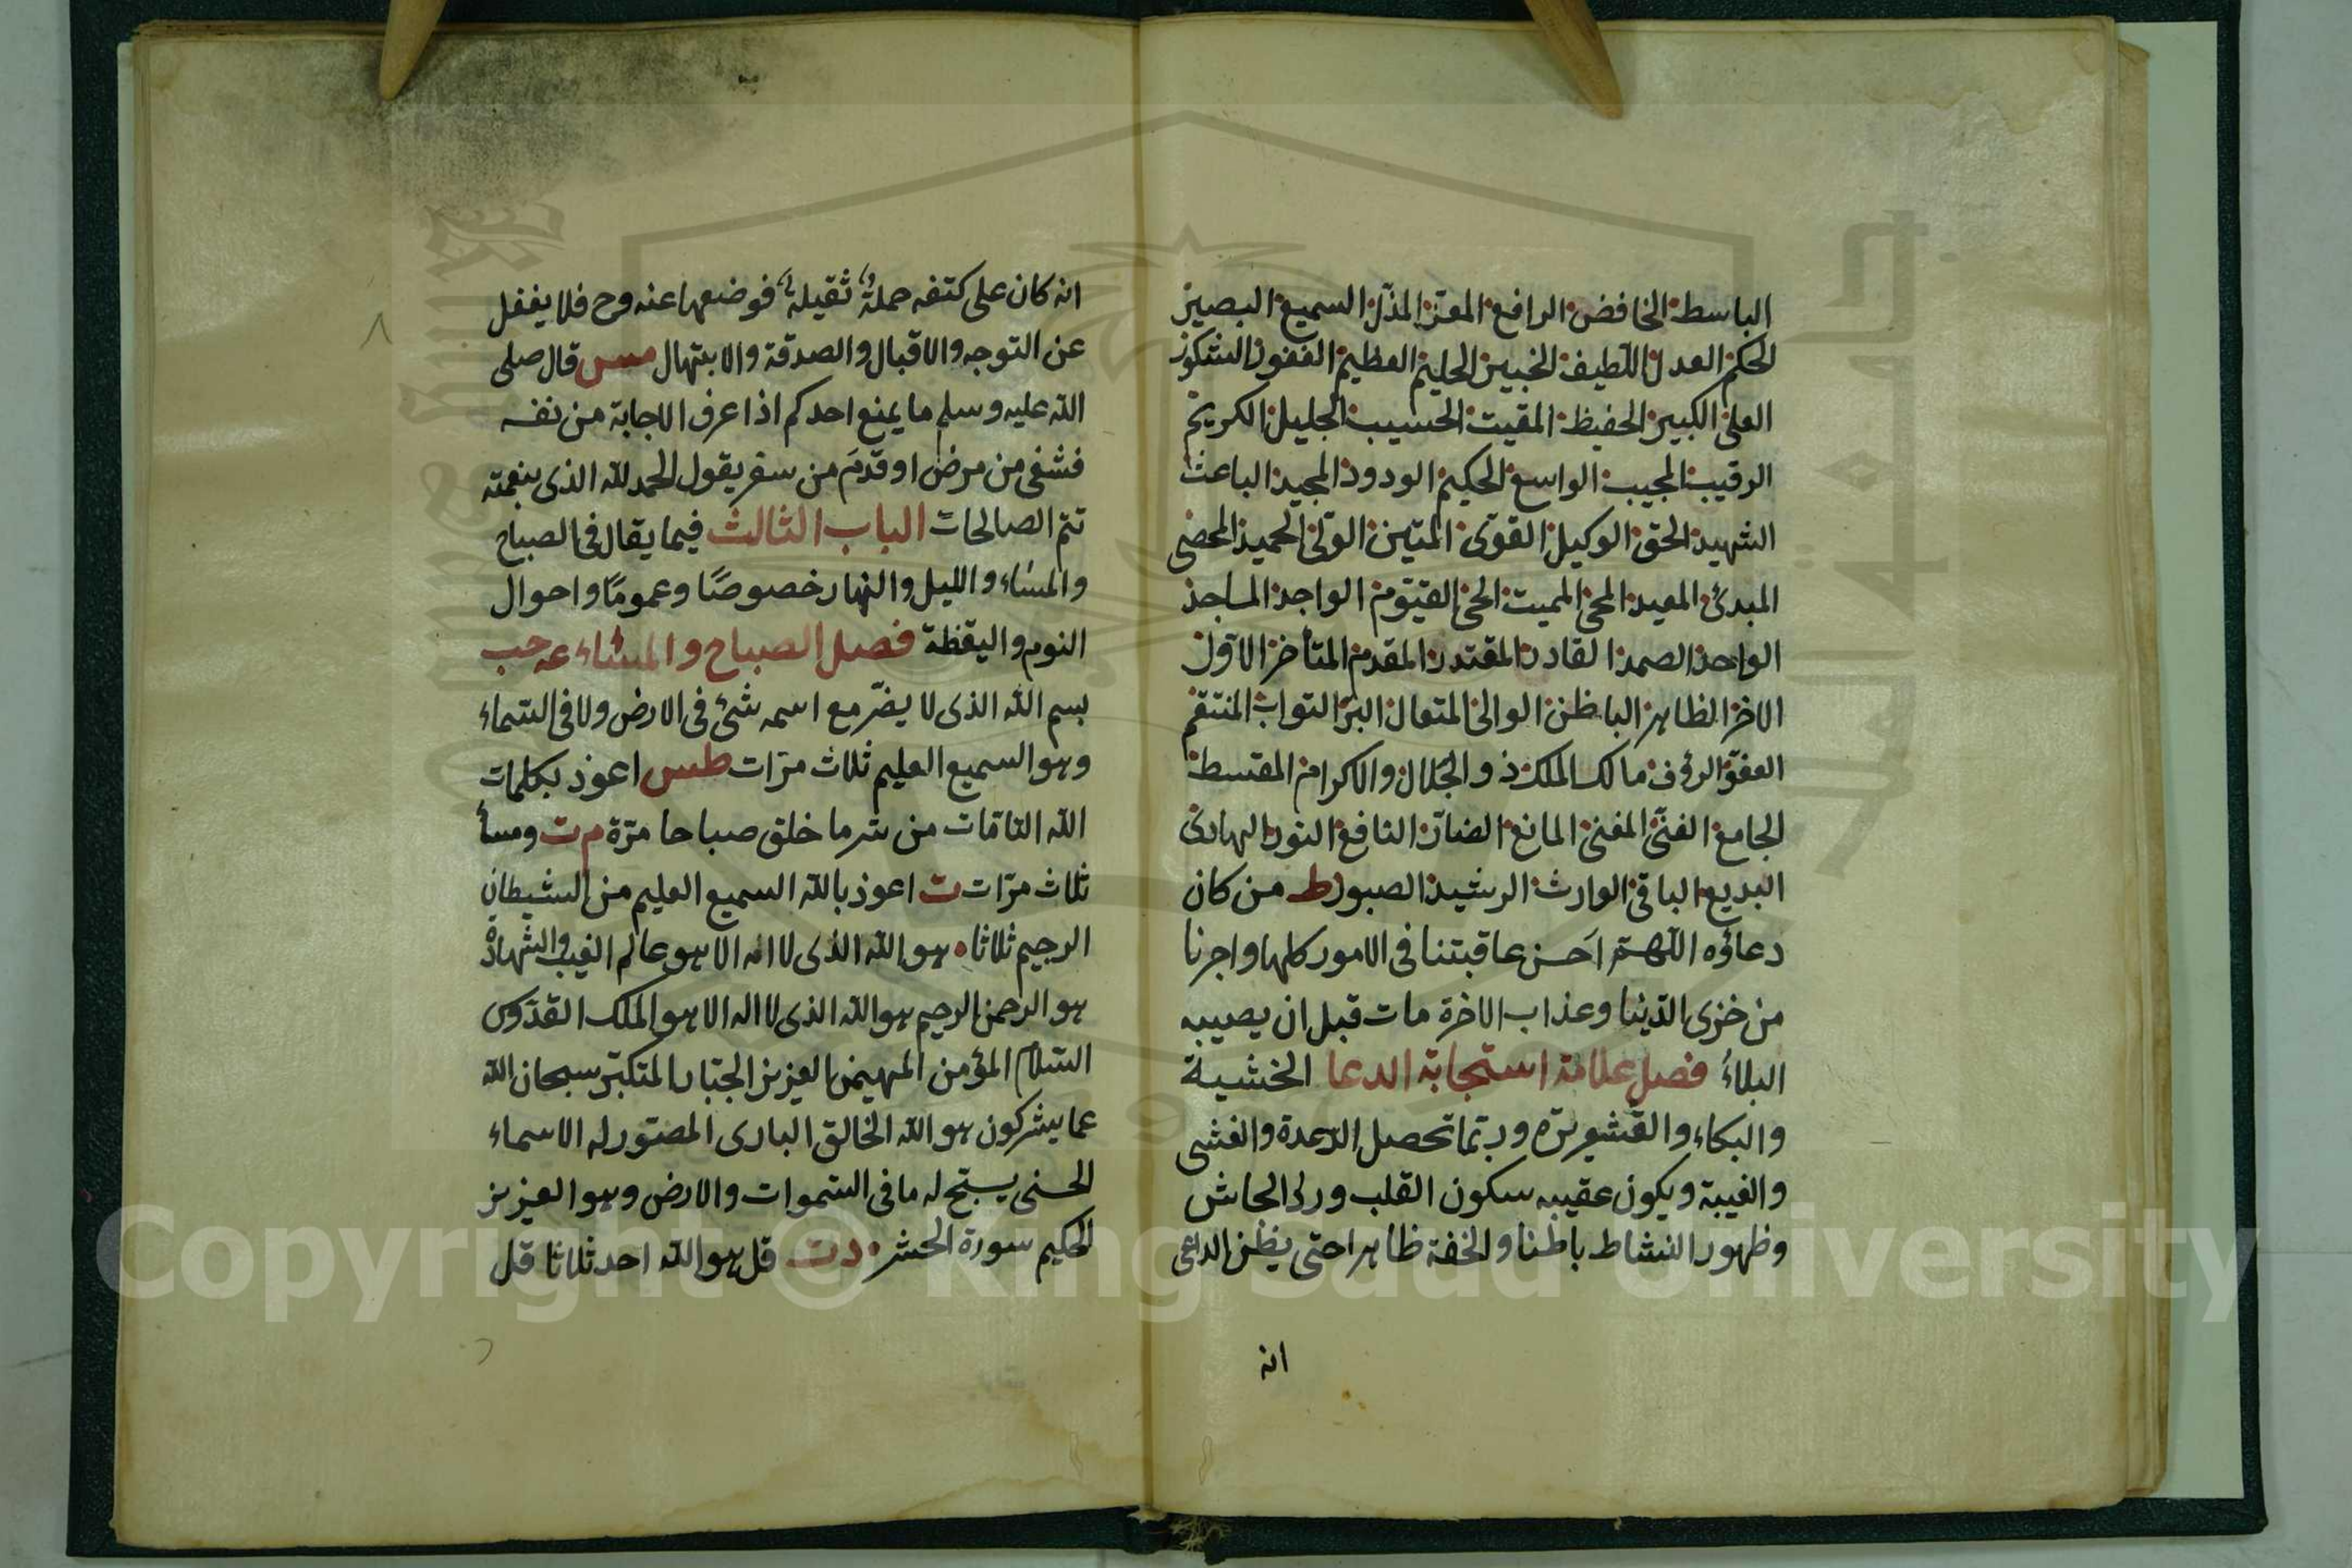 الباسط الخافض الرافع المعز المذل السميع البصير
الحكم العدل اللطيف الخبير الحليم العظيم الغفور الشكور
العلى الكبير الحفيظ المقيت الحسيب الجليل الكريم
الرقيب المجيب الواسع الحكيم الودود المجيد الباعث
الشهيد الحق الوكيل القوى المتين الولى الحميد المحصى
المبدئ المعيد المحى المميت الحى القيوم الواجد الماجد
الواحد الصمد القادر المقتدر المقدم المتأخر الاول
الاخر الظاهر الباطن الوالى المتعال البر التواب المنتقم
العفو الرؤف مالك الملك ذو الجلال والاكرام المقسط
الجامع الغنى المغنى المانع الضار النافع النور الهادى
البديع الباقى الوارث الرشيد الصبور ط من كان
دعاؤه اللهم احسن عاقبتنا فى الامور كلها واجرنا
من خزى الدنيا وعذاب الاخرة مات قبل ان يصيبه
البلاء فصل علامة استجابة الدعا الخشية
والبكاء والقشعريرة وربما تحصل الرعدة والغشى
والغيبة ويكون عقيبه سكون القلب وردالجاش
وظهور النشاط باطنا والخفة ظاهرا حتى يظن الداعى
انه
انه كان على كتفه حملة ثقيلة فوضعها عنه وح فلا يغفل
عن التوجه والاقبال والصدقة والابتهال مس قال صلى
الله عليه وسلم ما يمنع احدكم اذا عرف الاجابة من نفسه
فشفى من مرض او قدم من سفر يقول الحمد لله الذى بنعمته
تتم الصالحات الباب الثالث فيما يقال فى الصباح
والمساء والليل والنهار خصوصًا وعمومًا واحوال
النوم واليقظة فصل الصباح والمساء عه حب
بسم الله الذى لا يضر مع اسمه شئ فى الارض ولا فى السماء
وهو السميع العليم ثلاث مرات طس اعوذ بكلمات
الله التامات من شر ما خلق صباحا مرة م ت ومسأ
ثلاث مرات ت اعوذ بالله السميع العليم من الشيطان
الرجيم ثلاثا هو الله الذى لا اله الا هو عالم الغيب والشهادة
هو الرحمن الرحيم هو الله الذى لا اله الا هو الملك القدوس
السلام المؤمن المهيمن العزيز الجبار المتكبر سبحان الله
عما يشركون هو الله الخالق البارى المصور له الاسماء
الحسنى يسبح له ما فى السموات والارض وهو العزيز
الحكيم سورة الحشر د ت قل هو الله احد ثلاثا قل
Copyright © King Saud University